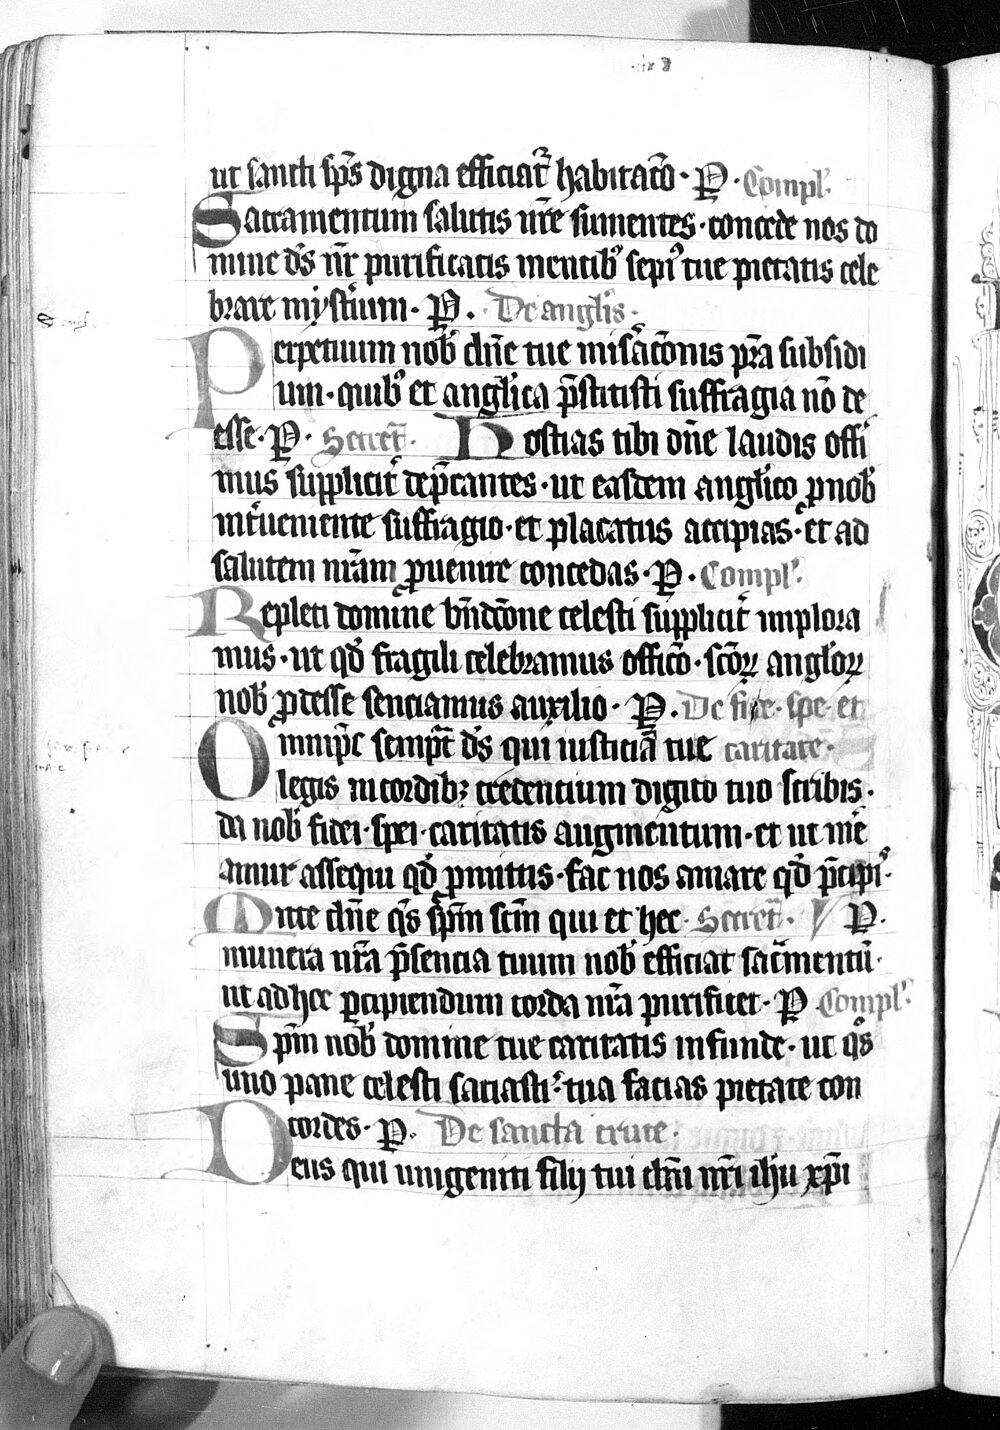 ut sancti sp̄s digna efficiat᷑ habitac̄o · P · Compl'.
Sacramentum salutis nr̄e sumentes · concede nos do
mine ds̄ nr̄ purificatis mentib' sepi' tue pietatis cele
brare mysт̄ium · P · De angl'is ·
Perpetuum nob' dn̄e tue mis̄ac̄onis pr̄a subsidi
um · quib' et angl'ica p̄stitisti suffragia nō de
esse · P · Secret̄ · Hostias tibi dn̄e laudis offi
mus supplicit᷑ dep̄cantes · ut easdem angl'ico ꝓ nob'
int̄ueniente suffragio · et placatus accipias · et ad
salutem nr̄am ꝓuenire concedas · P · Compl'.
Repleti domine bn̄dcc̄one celesti supplicit᷑ implora
mus · ut qd̄ fragili celebramus offic̄o · sc̄oꝝ angl'oꝝ
nob' ꝓdesse senciamus auxilio · P · De fide · spe · et
Omnip̄c sempt̄ ds̄ qui iusticiā tue caritate ·
legis in cordibꝫ credencium digito tuo scribis ·
da nob' fidei · spei · caritatis augmentum · et ut me᷑
amur assequi qd̄ ꝓmittis · fac nos amare qd̄ p̄cipi' ·
Mitte dn̄e qs̄ sp̄m sc̄m qui et hec · Secret̄ · P ·
munera nr̄a p̄sencia tuum nob' efficiat sac̄mentū ·
ut ad hec ꝑcipiendum corda nr̄a purificet · P Compl'.
Sp̄m nob' domine tue caritatis infunde · ut qs̄
uno pane celesti saciasti · tua facias pietate con
cordes · P · De sancta cruce ·
Deus qui unigeniti filij tui dn̄i nr̄i ih̄u xp̄i